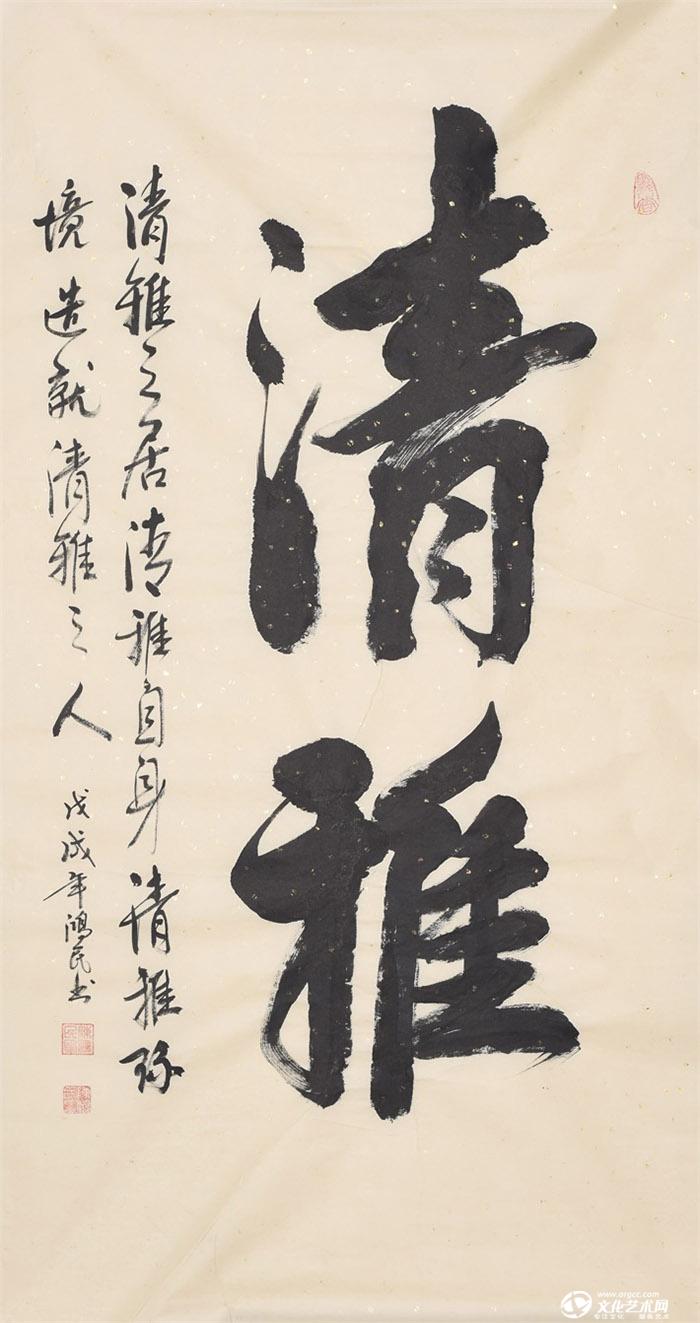 清雅
清雅之居清雅自身清雅环
境造就清雅之人
戊戌年鸿民书
www.orgcc.com
文化艺术网